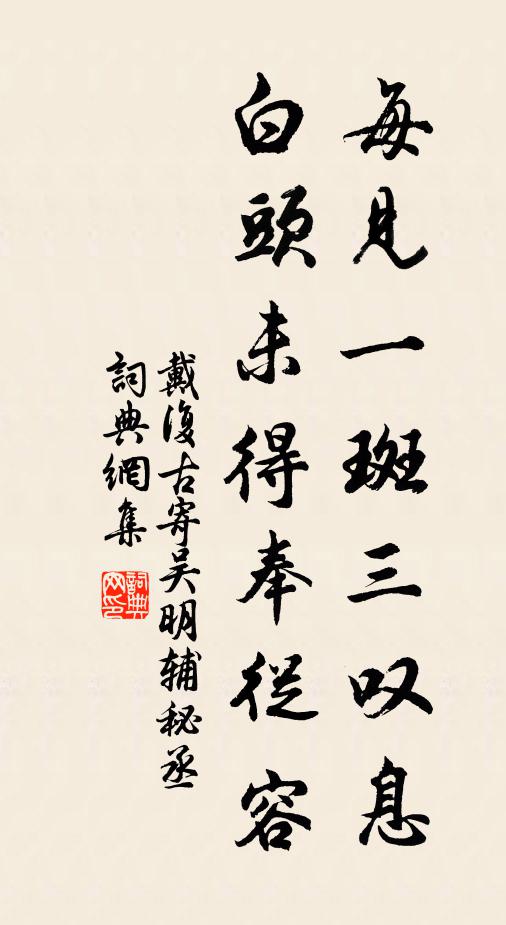 每见一斑三叹息
白頭未得奉從容
戴復古寄吴明辅秘丞
詞典網集
詞典网印